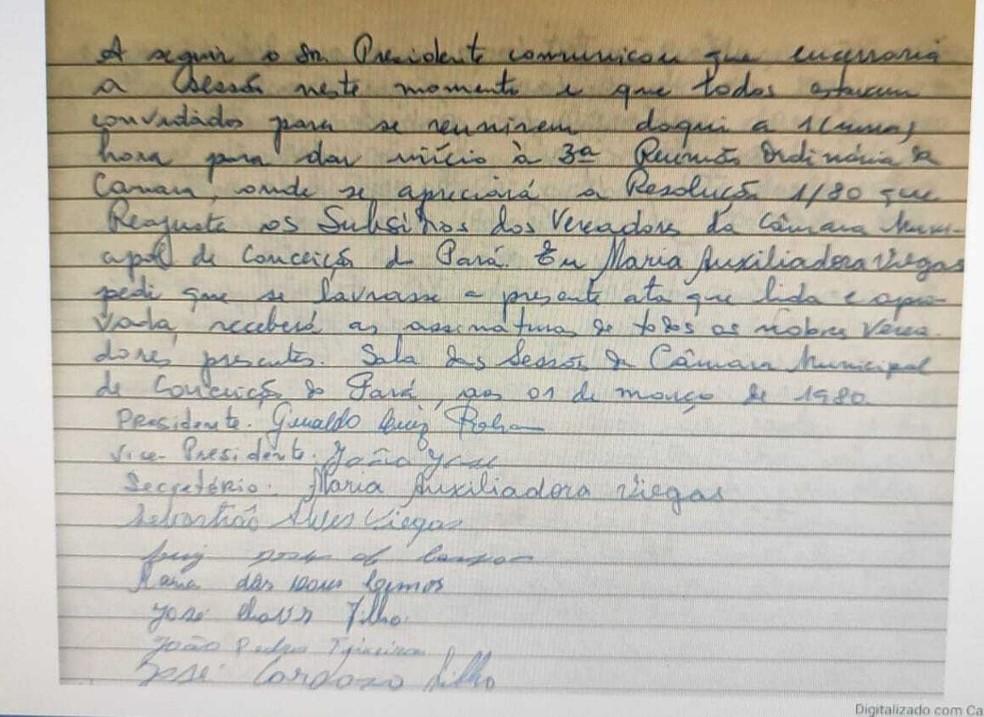 A seguir o Sr. Presidente comunicou que encerraria
a Sessão neste momento e que todos estavam
convidados para se reunirem daqui a 1 (uma)
hora para dar início à 3ª Reunião Ordinária da
Câmara, onde se apreciará a Resolução 1/80 que
Reajusta os Subsídios dos Vereadores da Câmara Muni-
cipal de Conceição do Pará. Eu Maria Auxiliadora Viegas
pedi que se lavrasse a presente ata que lida e apro-
vada, receberá as assinatura de todos os nobres Verea-
dores presentes. Sala das Sessões da Câmara Municipal
de Conceição do Pará, aos 01 de março de 1980.
Presidente. Geraldo Luiz
Vice-Presidente. João José
Secretário. Maria Auxiliadora Viegas
Sebastião Alves Viegas
Luiz de Campos
Maria das Lemos
José Chaves Filho.
João Pedro Teixeira
José Cardoso Filho
Digitalizado com Ca